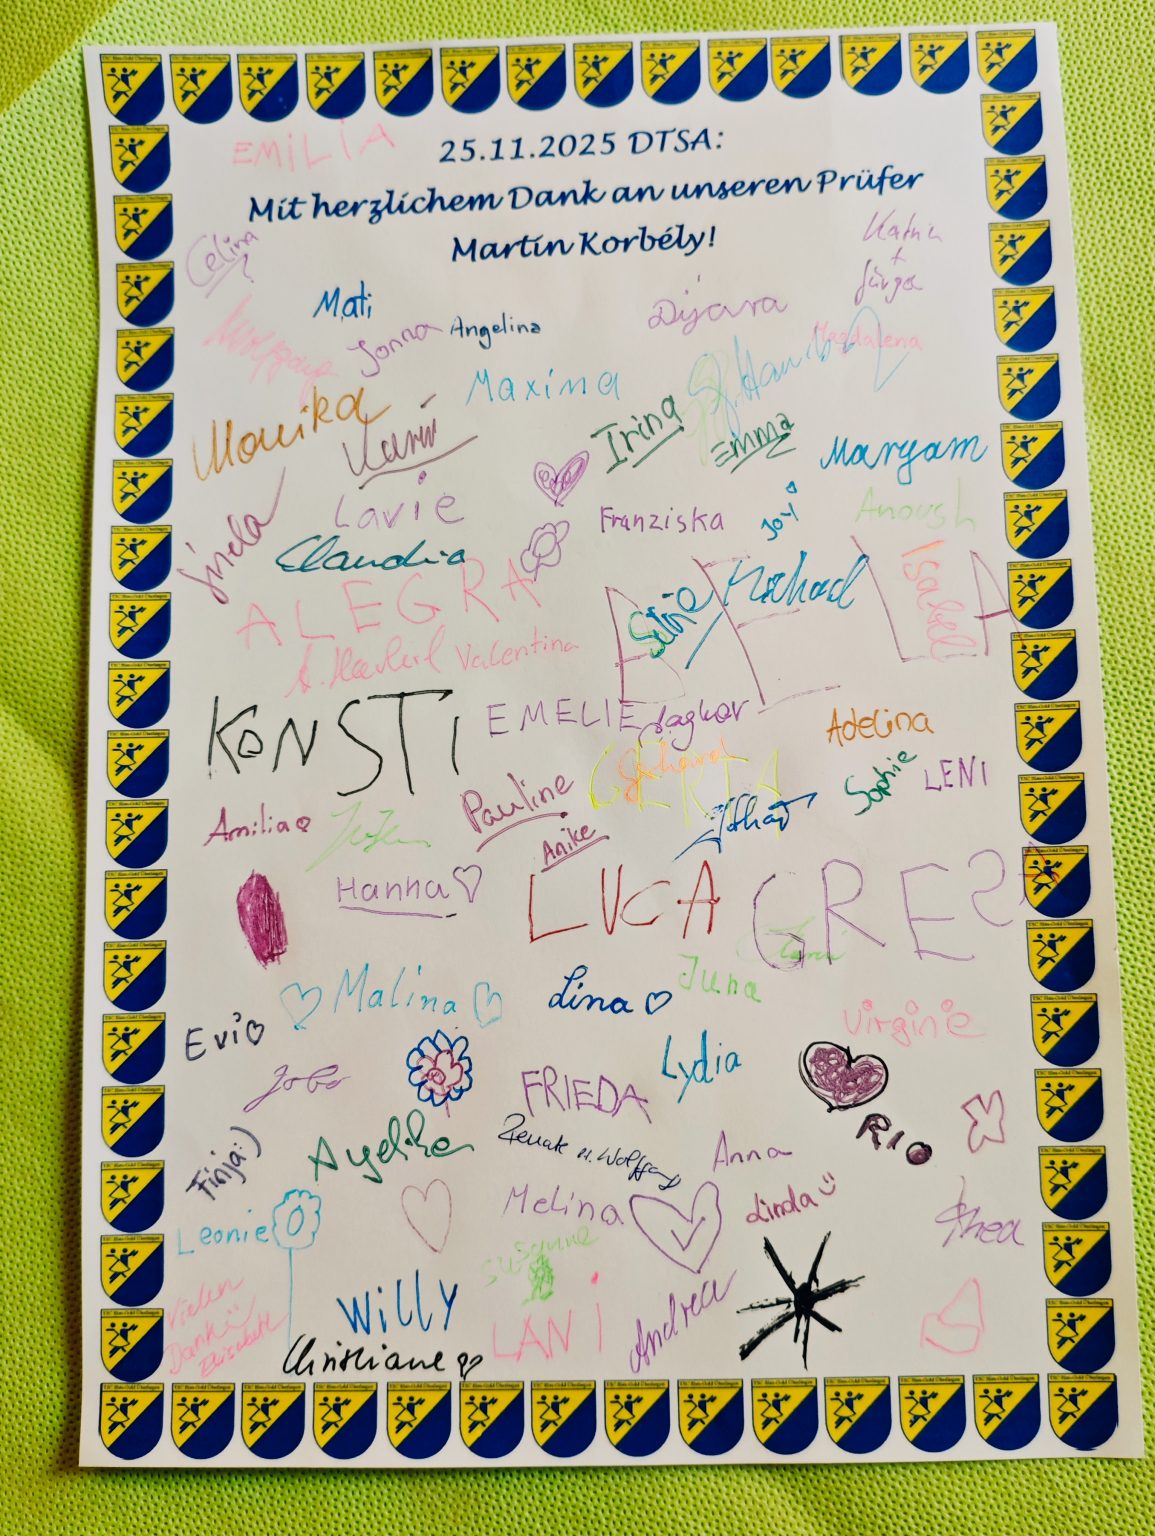 EMILIA
25.11.2025 DTSA:
Mit herzlichem Dank an unseren Prüfer
Martin Korbély!
Celina
Katrin
+
Jürgen
Mati
Wolfgang
Jonna
Angelina
Dijara
Magdalena
Maxima
Monika
Karin
Irina
Emma
Maryam
Lavie
Franziska
Joy
Anoush
Claudia
ALEGRA
Silvie
Michael
Isabell
Valentina
KONSTI
EMELIE
Adelina
Gerhard
GERTA
Sophie
LENI
Pauline
Amilia
Anike
Lothar
Hanna
LUCA
GRETA
Juna
Malina
Lina
Virginie
Evi
Lydia
FRIEDA
RIO
Angelika
Renate u. Wolfgang
Anna
Finja:)
Melina
Linda
Thea
Leonie
Susanne
Vielen
Dank
Elisabeth
Willy
LANI
Andrea
Christiane